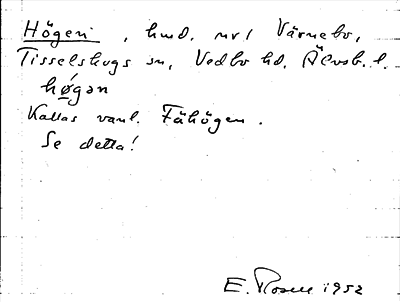 Högen, hmd. nr 1 Värnebo,
Tisselskogs sn, Vedbo hd. Älvsb. l.
høgən
Kallas vanl. Fähögen.
Se detta!
E. Rosell 1952